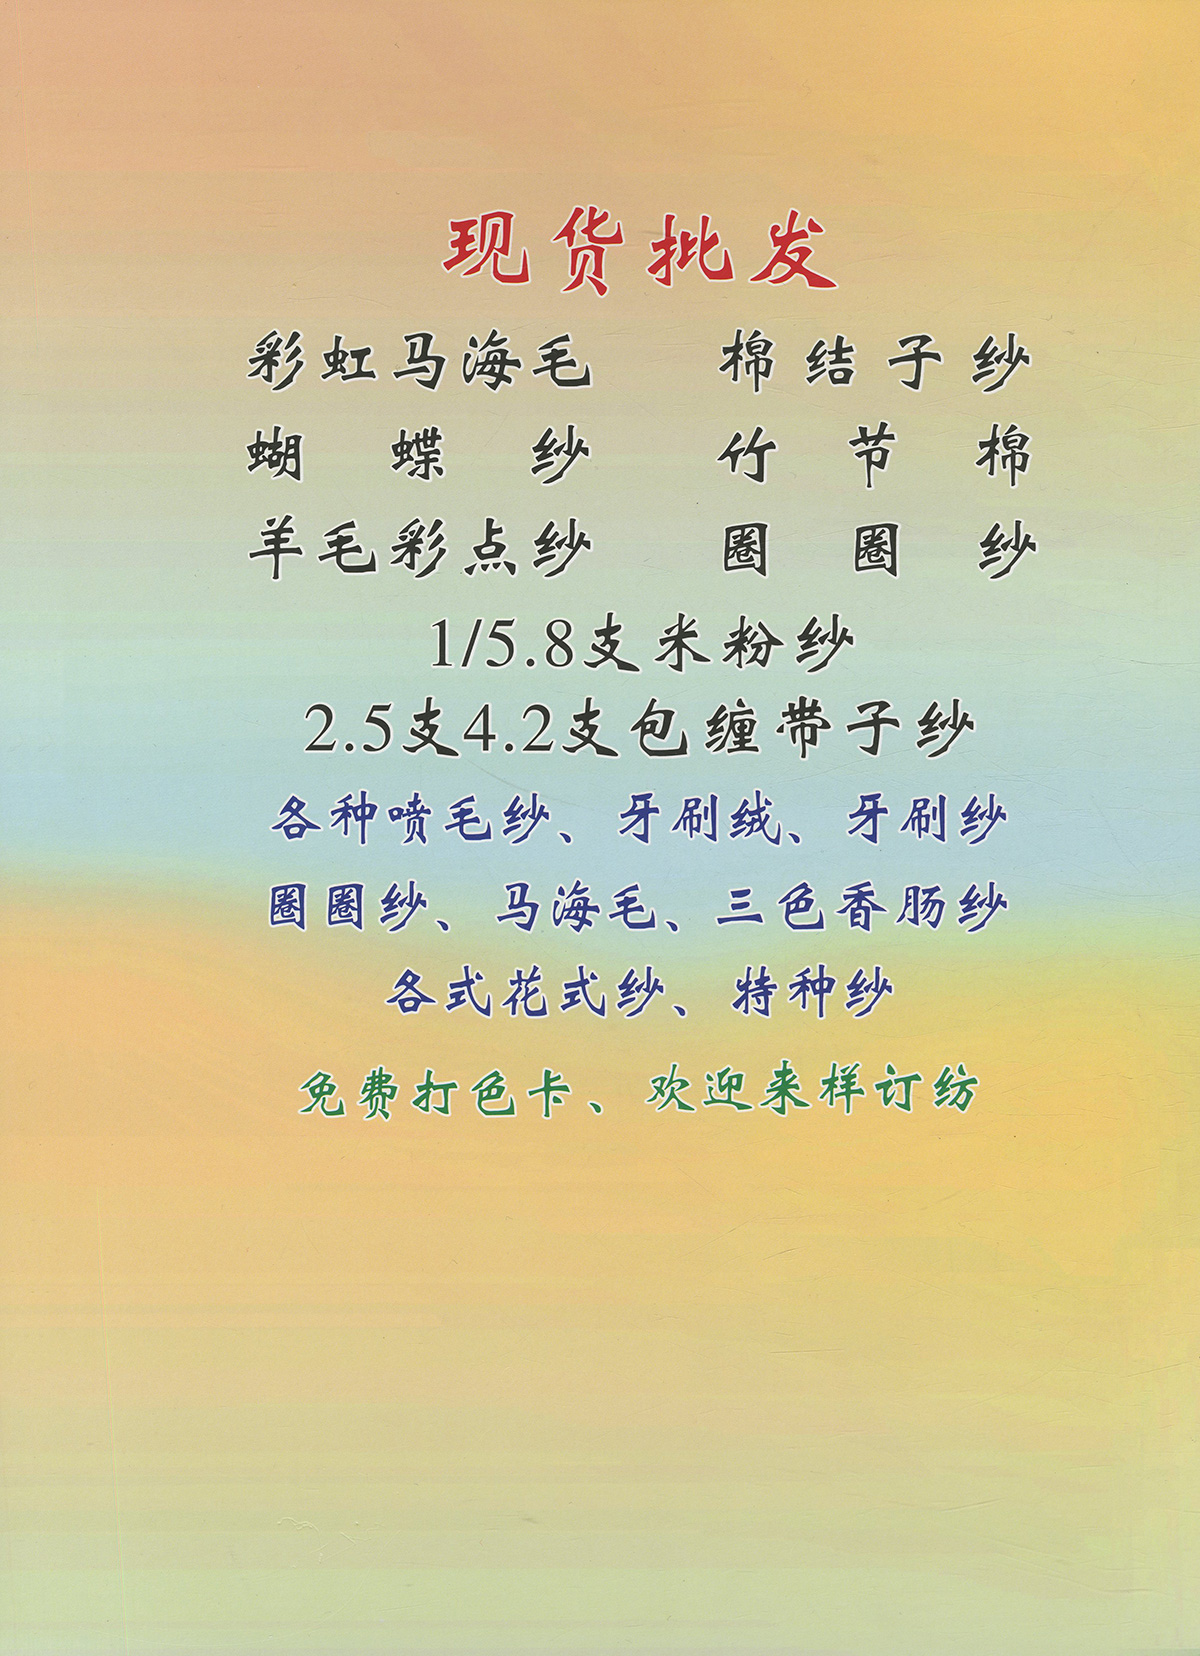 现货批发
彩虹马海毛 棉结子纱
蝴蝶纱 竹节棉
羊毛彩点纱 圈圈纱
1/5.8支米粉纱
2.5支4.2支包缠带子纱
各种喷毛纱、牙刷绒、牙刷纱
圈圈纱、马海毛、三色香肠纱
各式花式纱、特种纱
免费打色卡、欢迎来样订纺